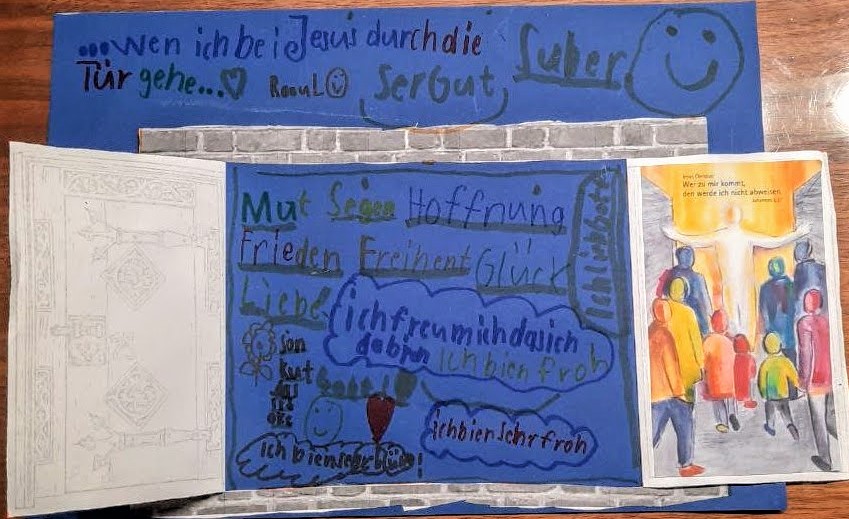 ...wen ich bei Jesus durch die
Tür gehe...
RaouL
SerGut
Suber
Mut Segen Hoffnung
Frieden Freiheit Glück
Liebe
ich lieb Gott
ich freu mich das ich
dabin
ich bien froh
ich bien sehr froh
Jesus Christus:
Wer zu mir kommt,
den werde ich nicht abweisen.
Johannes 6,37